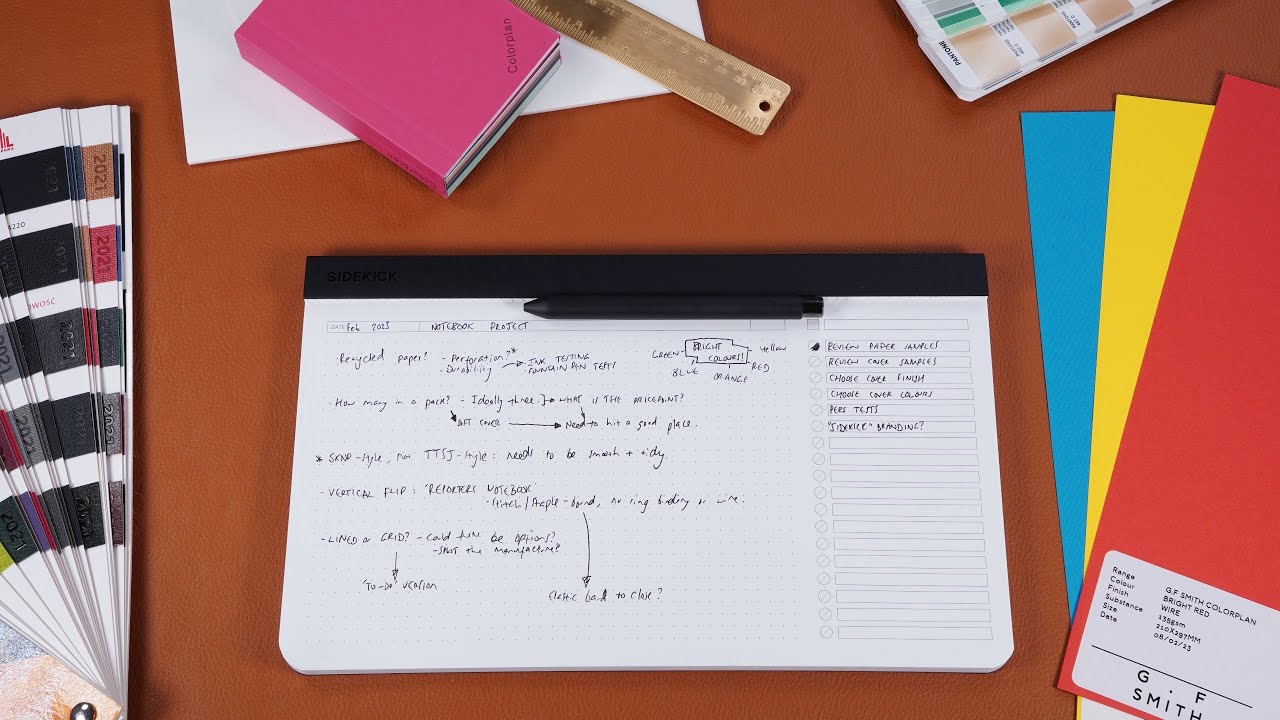 Colorplan
PANTONE
2021
2021
4220
2021
NOWOŚĆ
2021
2021
2021
2021
2021
2021
2021
SIDEKICK
DATE Feb 2023 NOTEBOOK PROJECT
- Recycled paper? - Perforation?*
- Durability → - INK TESTING
- FOUNTAIN PEN TESTS
GREEN - BRIGHT COLOURS! - Yellow
BLUE ORANGE RED
- How many in a pack? - Ideally three. → WHAT IS THE PRICEPOINT?
SOFT COVER → Need to hit a good place.
* SKND-style, not TTSJ-style: needs to be smooth + tidy
- VERTICAL FLIP: 'REPORTERS NOTEBOOK'
- Stitch/Staple-bound, no ring binding or wire.
- LINED or GRID? - Could there be options?
- the manufacturer?
'TO-DO' VERSION
Elastic band to close?
REVIEW PAPER SAMPLES
REVIEW COVER SAMPLES
CHOOSE COVER FINISH
CHOOSE COVER COLOURS
PENS TESTS
"SIDEKICK" BRANDING?
Range G.F SMITH COLORPLAN
Colour BRIGHT RED
Finish WIRE
Substance 135gsm
Size 210X297MM
Date 08/02/23
G . F
SMITH